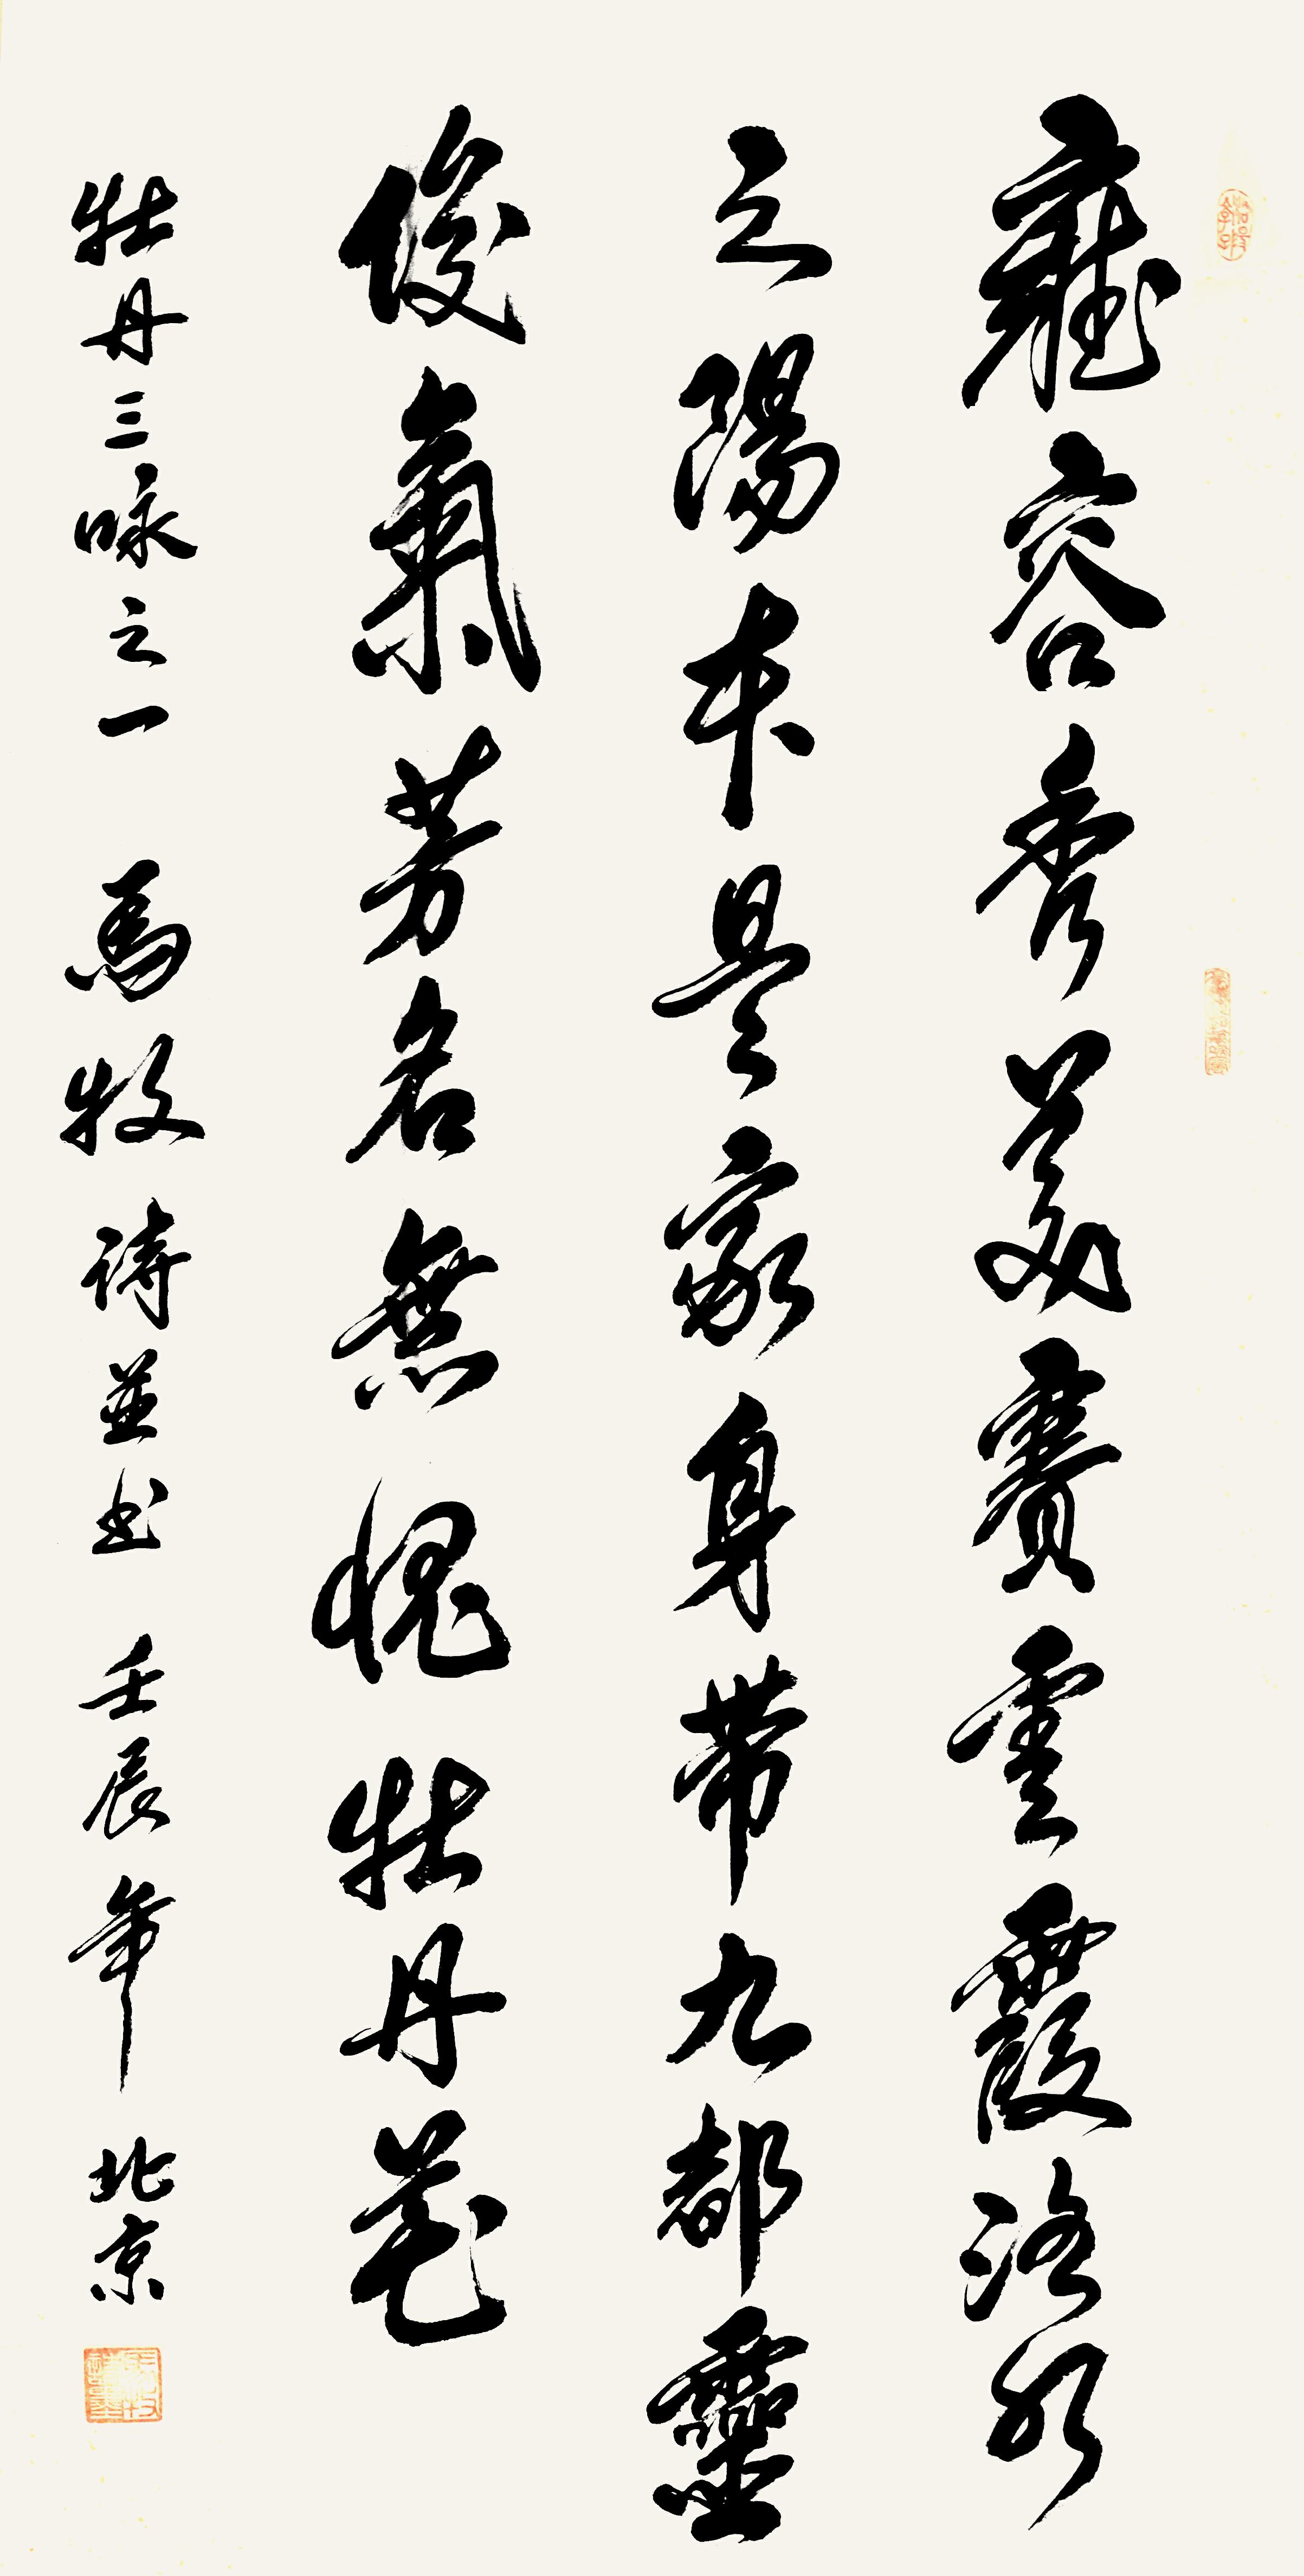 雍容秀美賽雲霞洛水
之陽本是家身帶九都靈
俊氣芳名無愧牡丹花
牡丹三咏之一 馬牧詩並书 壬辰年 北京